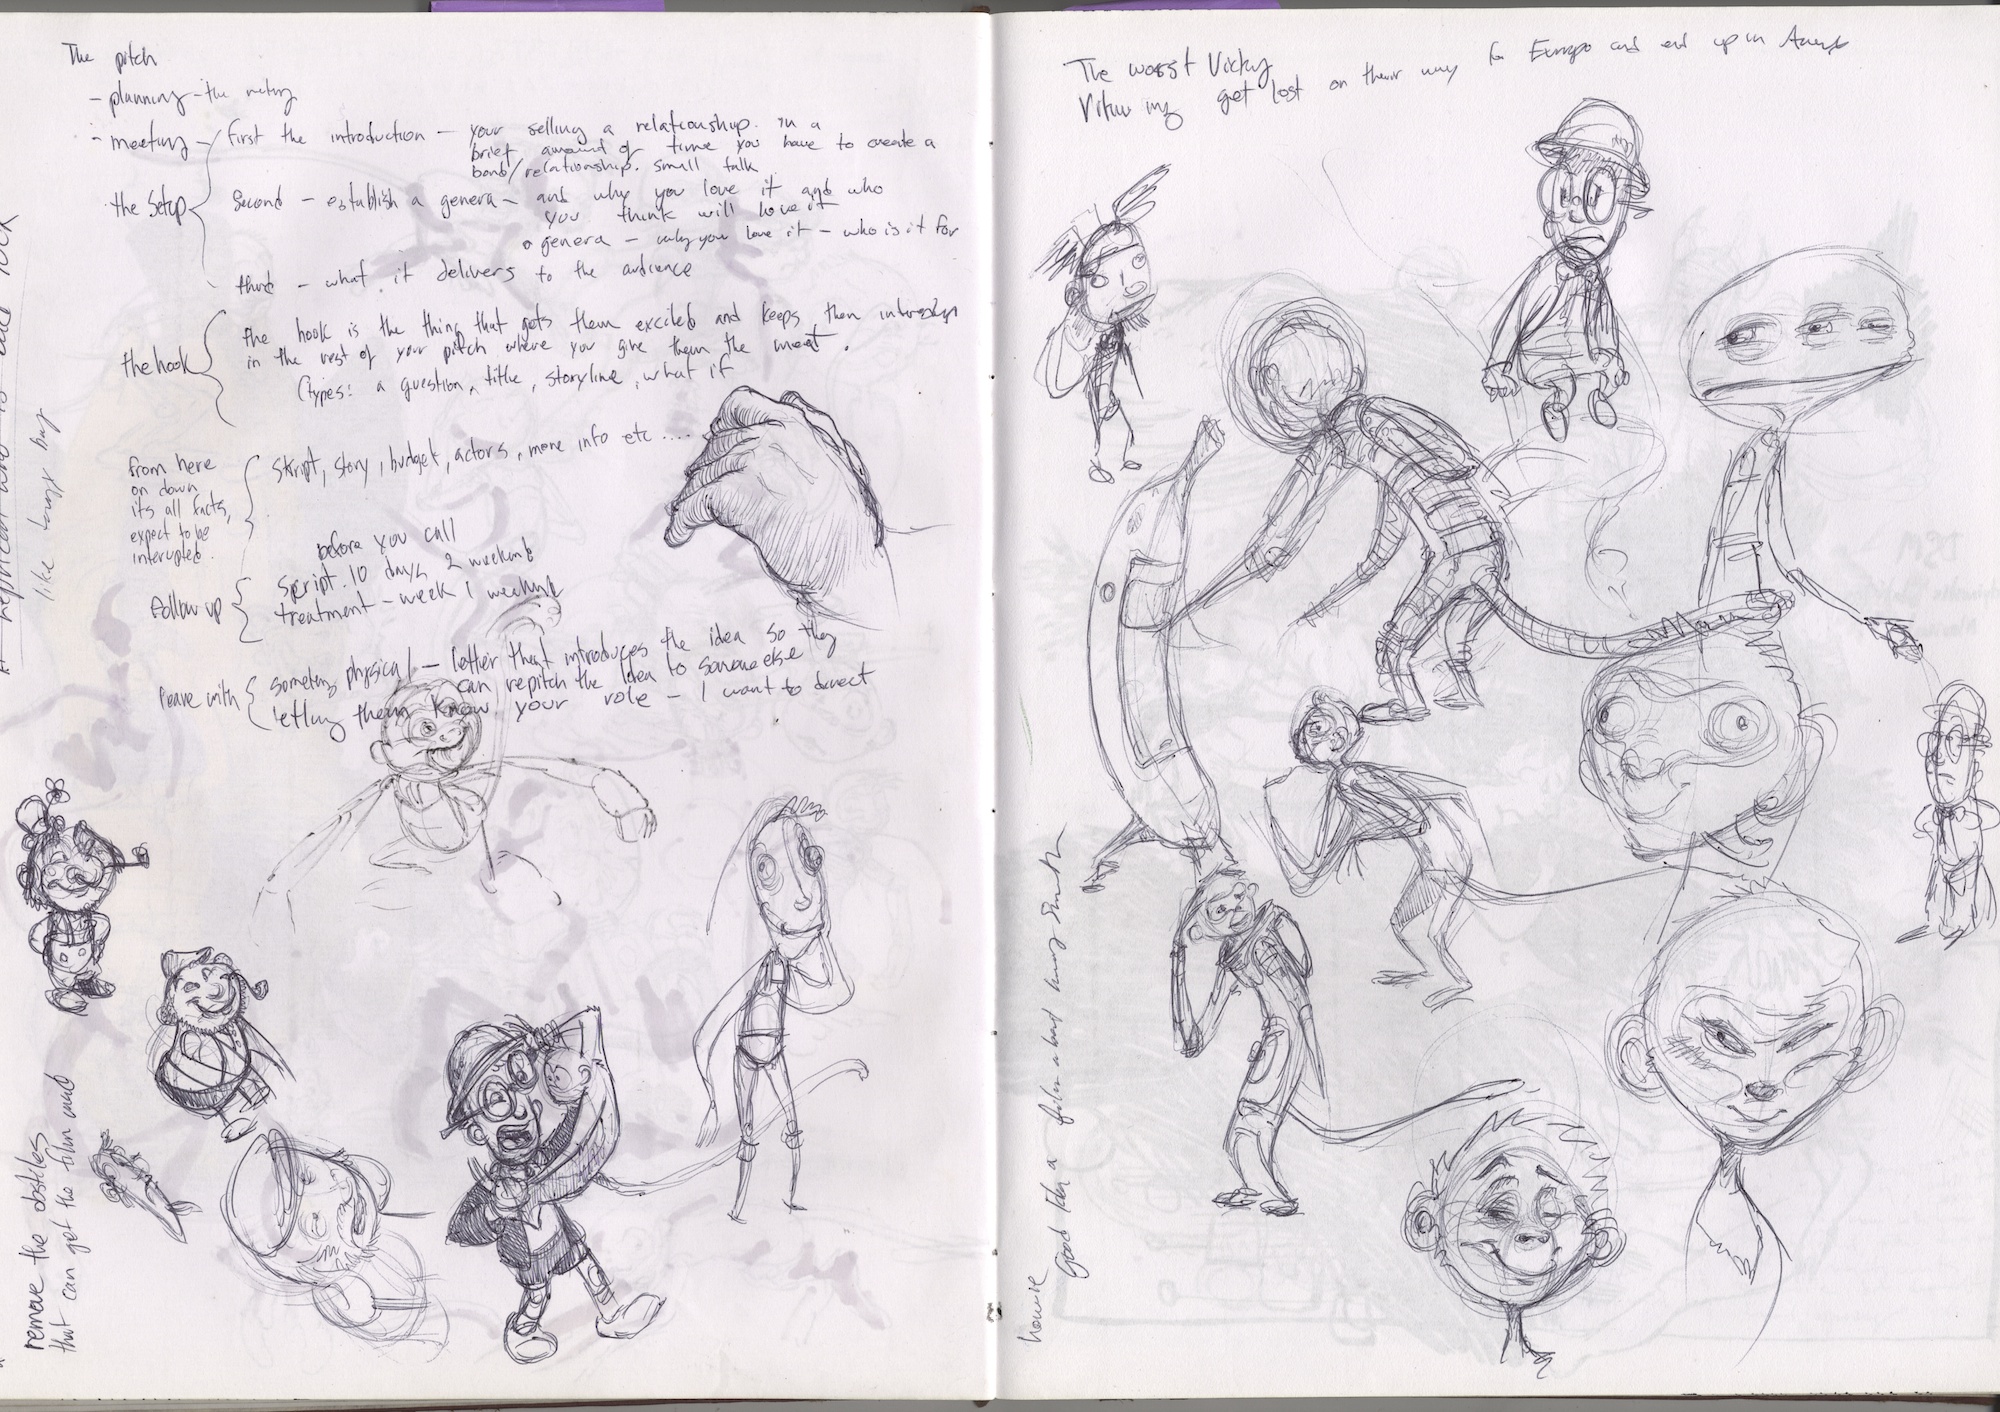 The pitch
- planning - the
- meeting - first the introduction - your selling a relationship. in a
brief amount of time you have to create a
bond/relationship. small talk
the Setup
Second - establish a genera - and why you love it and who
you think will love it
a genera - why you love it - who is it for
third - what it delivers to the audience
the hook
the hook is the thing that gets them excited and keeps them
in the rest of your pitch where you give them the meat.
(types: a question, title, storyline, what if
from here
on down
its all facts,
expect to be
interupted.
skript, story, budget, actors, more info etc....
before you call
Follow up
Script. 10 days 2 weekend
treatment - week 1 weekend
leave with
something physical - letter that introduces the idea so they
can repitch the idea to someone else
letting them know your role - I want to direct
like
remove the obstiles
that can get the film mad
The worst Vicky
get lost on their way for Europe and end up in
Good Idea a film